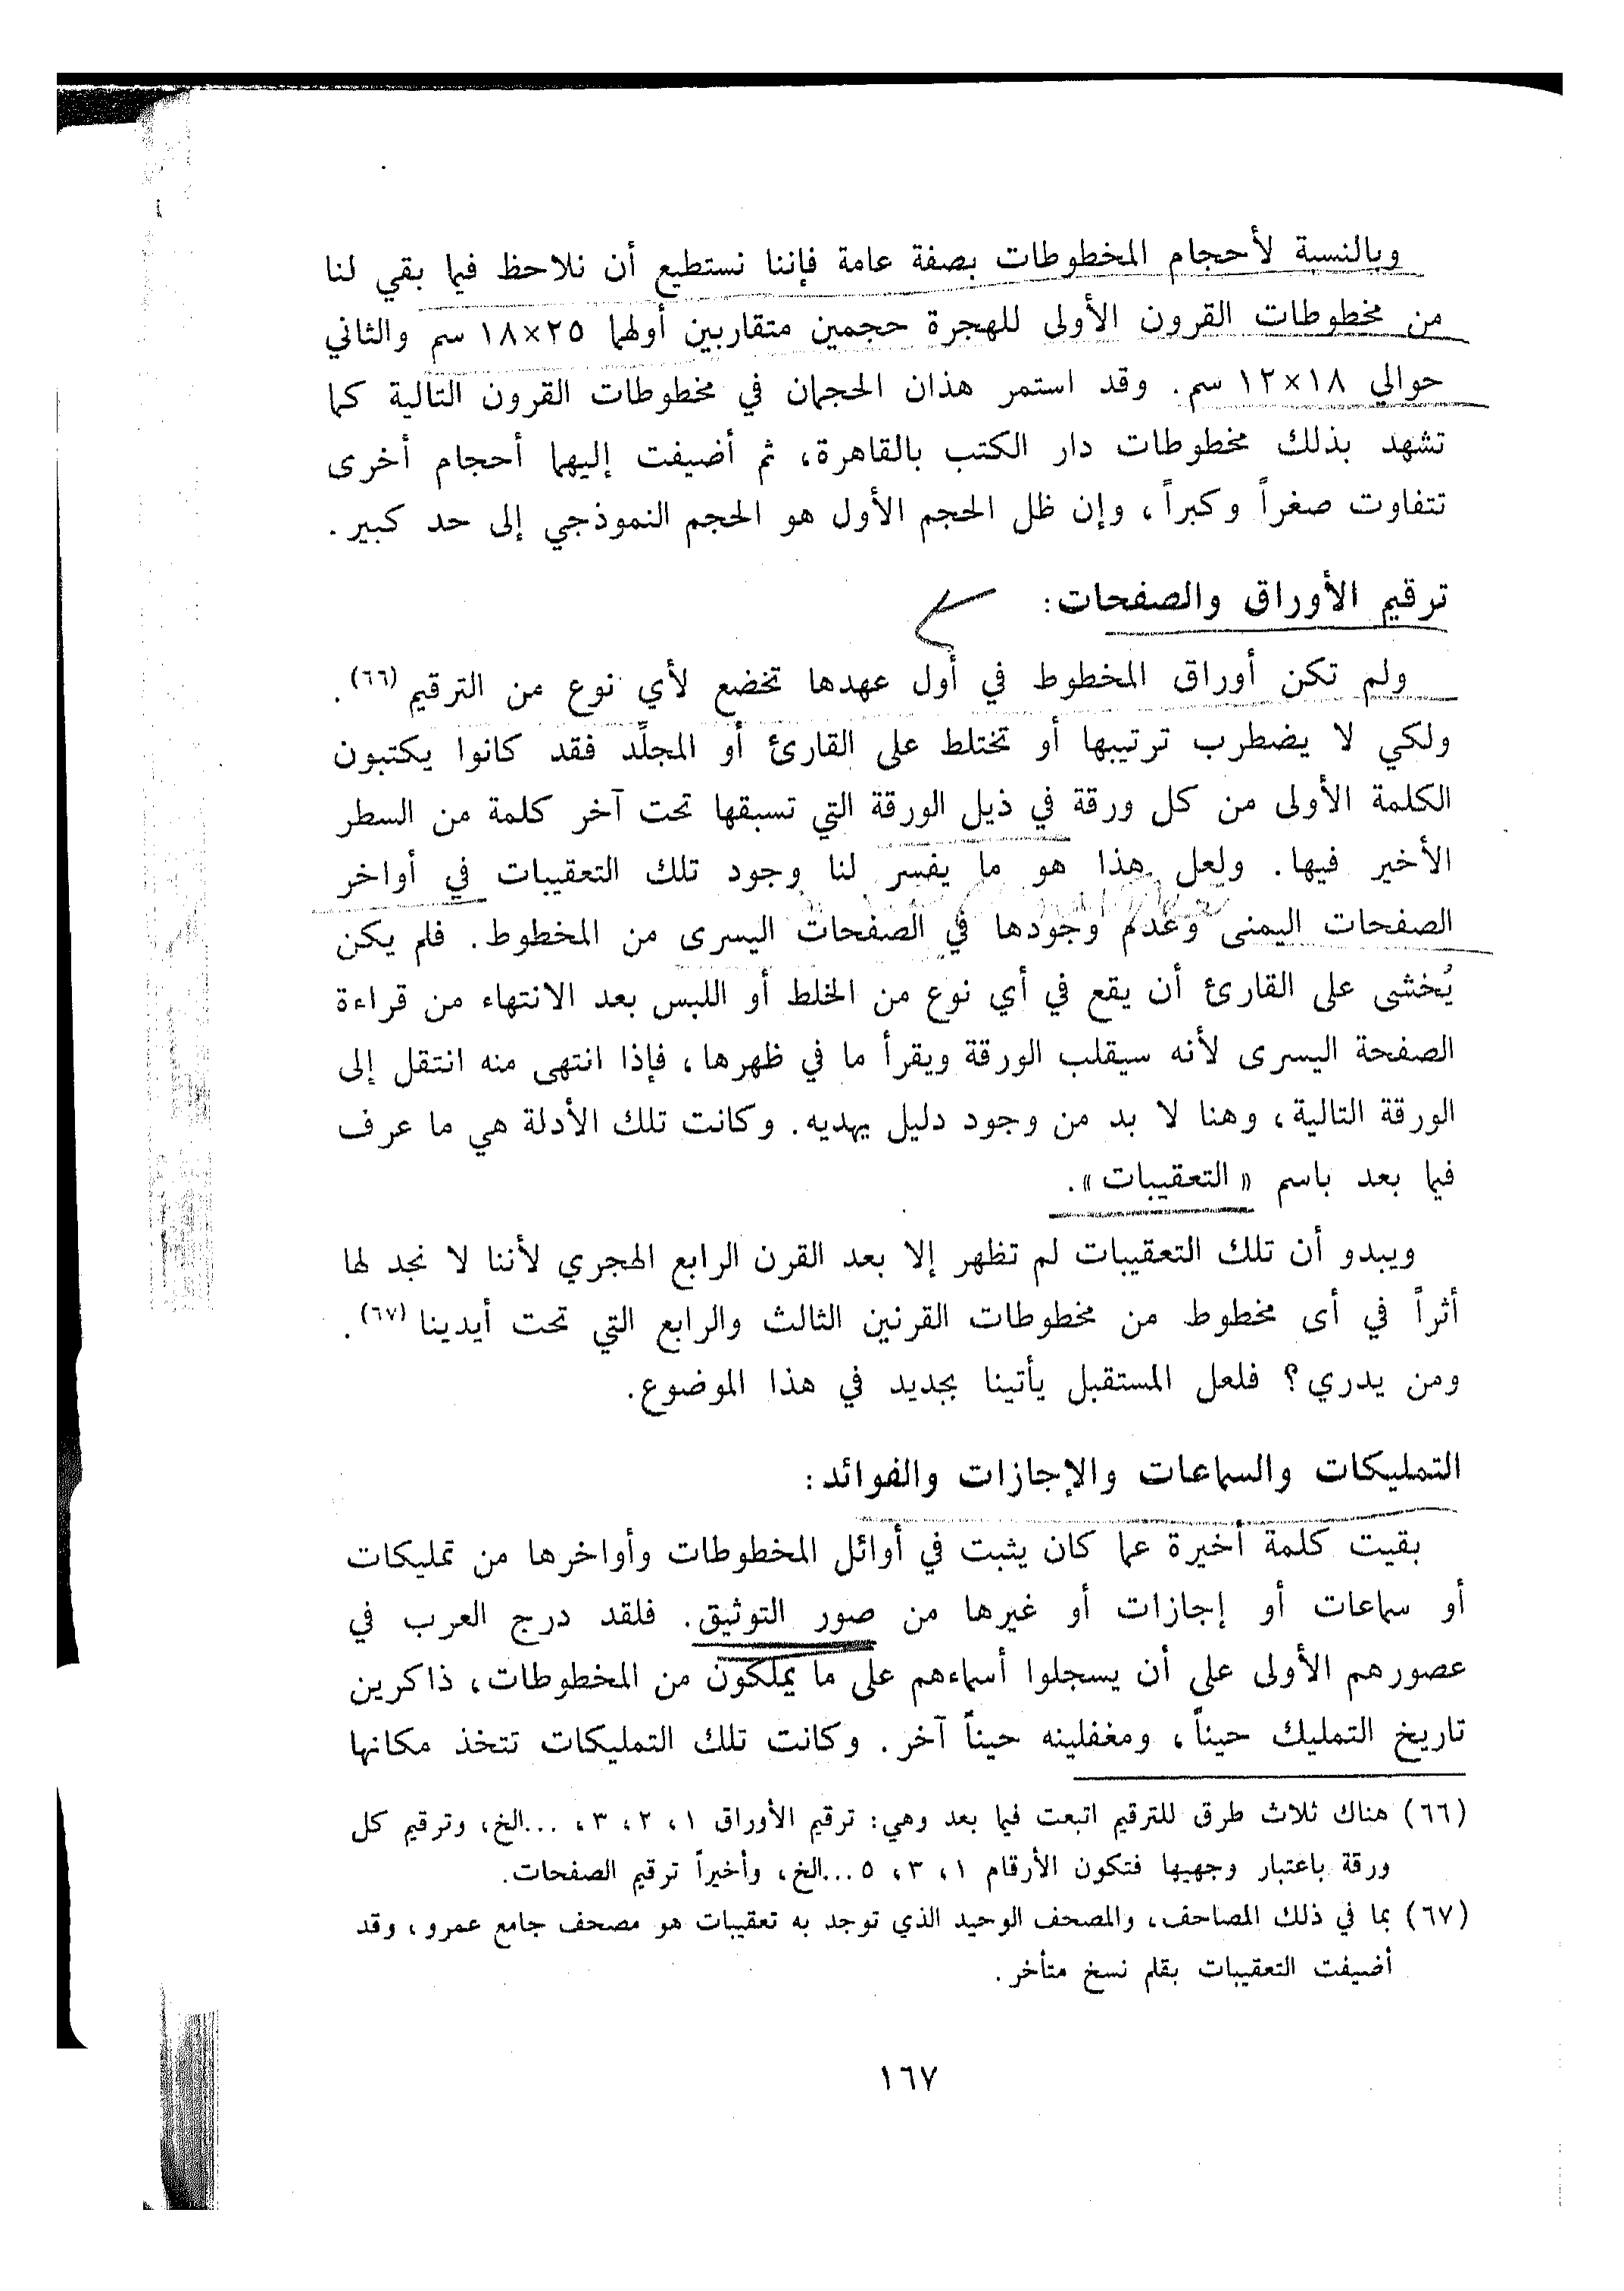 وبالنسبة لأحجام المخطوطات بصفة عامة فإننا نستطيع أن نلاحظ فيما بقي لنا
من مخطوطات القرون الأولى للهجرة حجمين متقاربين أولهما ٢٥×١٨ سم والثاني
حوالي ١٨×١٢ سم. وقد استمر هذان الحجمان في مخطوطات القرون التالية كما
تشهد بذلك مخطوطات دار الكتب بالقاهرة، ثم أضيفت إليهما أحجام أخرى
تتفاوت صغراً وكبراً، وإن ظل الحجم الأول هو الحجم النموذجي إلى حد كبير.
ترقيم الأوراق والصفحات:
ولم تكن أوراق المخطوط في أول عهدها تخضع لأي نوع من الترقيم (٦٦).
ولكي لا يضطرب ترتيبها أو تختلط على القارئ أو المجلِّد فقد كانوا يكتبون
الكلمة الأولى من كل ورقة في ذيل الورقة التي تسبقها تحت آخر كلمة من السطر
الأخير فيها. ولعل هذا هو ما يفسر لنا وجود تلك التعقيبات في أواخر
الصفحات اليمنى وعدم وجودها في الصفحات اليسرى من المخطوط. فلم يكن
يُخشى على القارئ أن يقع في أي نوع من الخلط أو اللبس بعد الانتهاء من قراءة
الصفحة اليسرى لأنه سيقلب الورقة ويقرأ ما في ظهرها، فإذا انتهى منه انتقل إلى
الورقة التالية، وهنا لا بد من وجود دليل يهديه. وكانت تلك الأدلة هي ما عرف
فيما بعد باسم «التعقيبات».
ويبدو أن تلك التعقيبات لم تظهر إلا بعد القرن الرابع الهجري لأننا لا نجد لها
أثراً في أى مخطوط من مخطوطات القرنين الثالث والرابع التي تحت أيدينا (٦٧).
ومن يدري؟ فلعل المستقبل يأتينا بجديد في هذا الموضوع.
التمليكات والسماعات والإجازات والفوائد:
بقيت كلمة أخيرة عما كان يثبت في أوائل المخطوطات وأواخرها من تمليكات
أو سماعات أو إجازات أو غيرها من صور التوثيق. فلقد درج العرب في
عصورهم الأولى على أن يسجلوا أسماءهم على ما يملكون من المخطوطات، ذاكرين
تاريخ التمليك حيناً، ومغفلينه حيناً آخر. وكانت تلك التمليكات تتخذ مكانها
(٦٦) هناك ثلاث طرق للترقيم اتبعت فيما بعد وهي: ترقيم الأوراق ١، ٢، ٣، ...الخ، وترقيم كل
ورقة باعتبار وجهيها فتكون الأرقام ١، ٣، ٥...الخ، وأخيراً ترقيم الصفحات.
(٦٧) بما في ذلك المصاحف، والمصحف الوحيد الذي توجد به تعقيبات هو مصحف جامع عمرو، وقد
أضيفت التعقيبات بقلم نسخ متأخر.
١٦٧